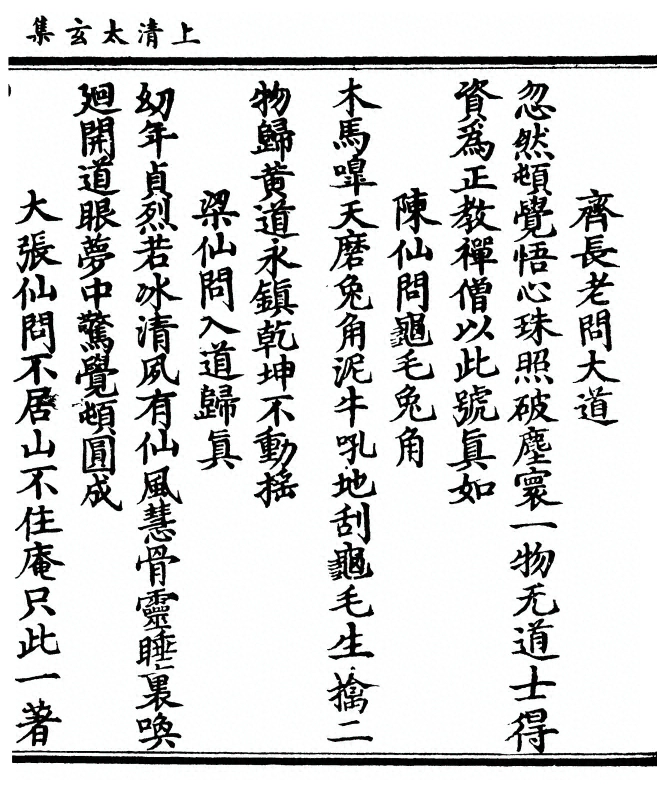 上清太玄集
齊長老問大道
忽然頓覺悟心珠照破塵寰一物无道士得
資爲正教禪僧以此號眞如
陳仙問龜毛兔角
木馬嘷天磨兔角泥牛吼地刮龜毛生擒二
物歸黄道永鎮乾坤不動搖
梁仙問入道歸眞
幼年貞烈若冰清夙有仙風慧骨靈睡裏喚
廻開道眼夢中驚覺頓圓成
大張仙問不居山不住庵只此一著